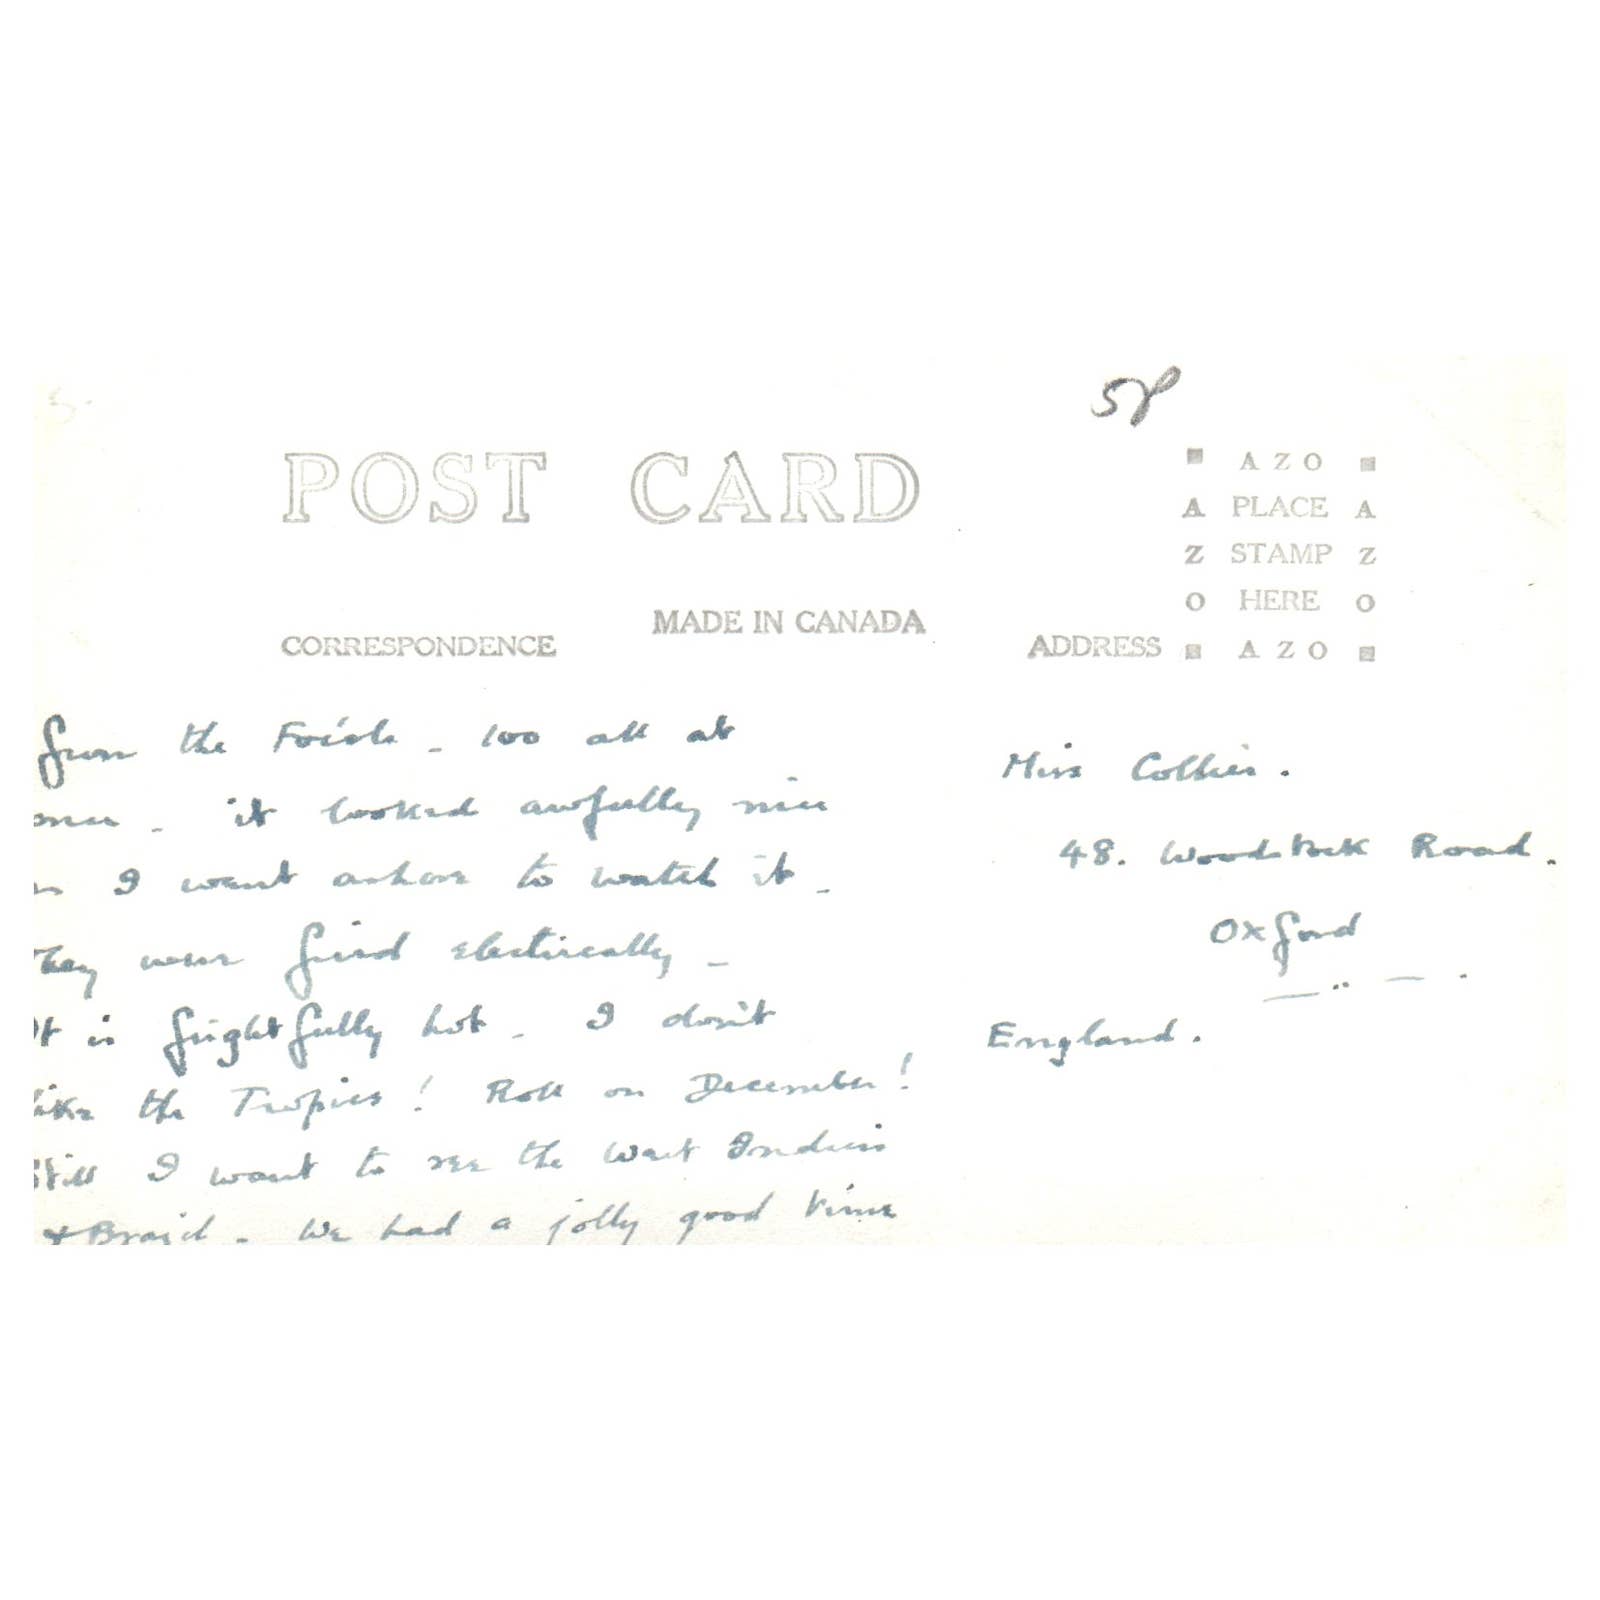 58
POST CARD
AZO
A PLACE A
Z STAMP Z
O HERE O
AZO
MADE IN CANADA
CORRESPONDENCE
ADDRESS
from the - 100 all at
once - it looked awfully nice
I went ashore to watch it -
They were fired electrically -
It is frightfully hot - I don't
like the Tropics! Roll on December!
Still I want to see the West Indies
+ Brazil - We had a jolly good time
Miss Collier.
48. Woodstock Road.
Oxford
England.